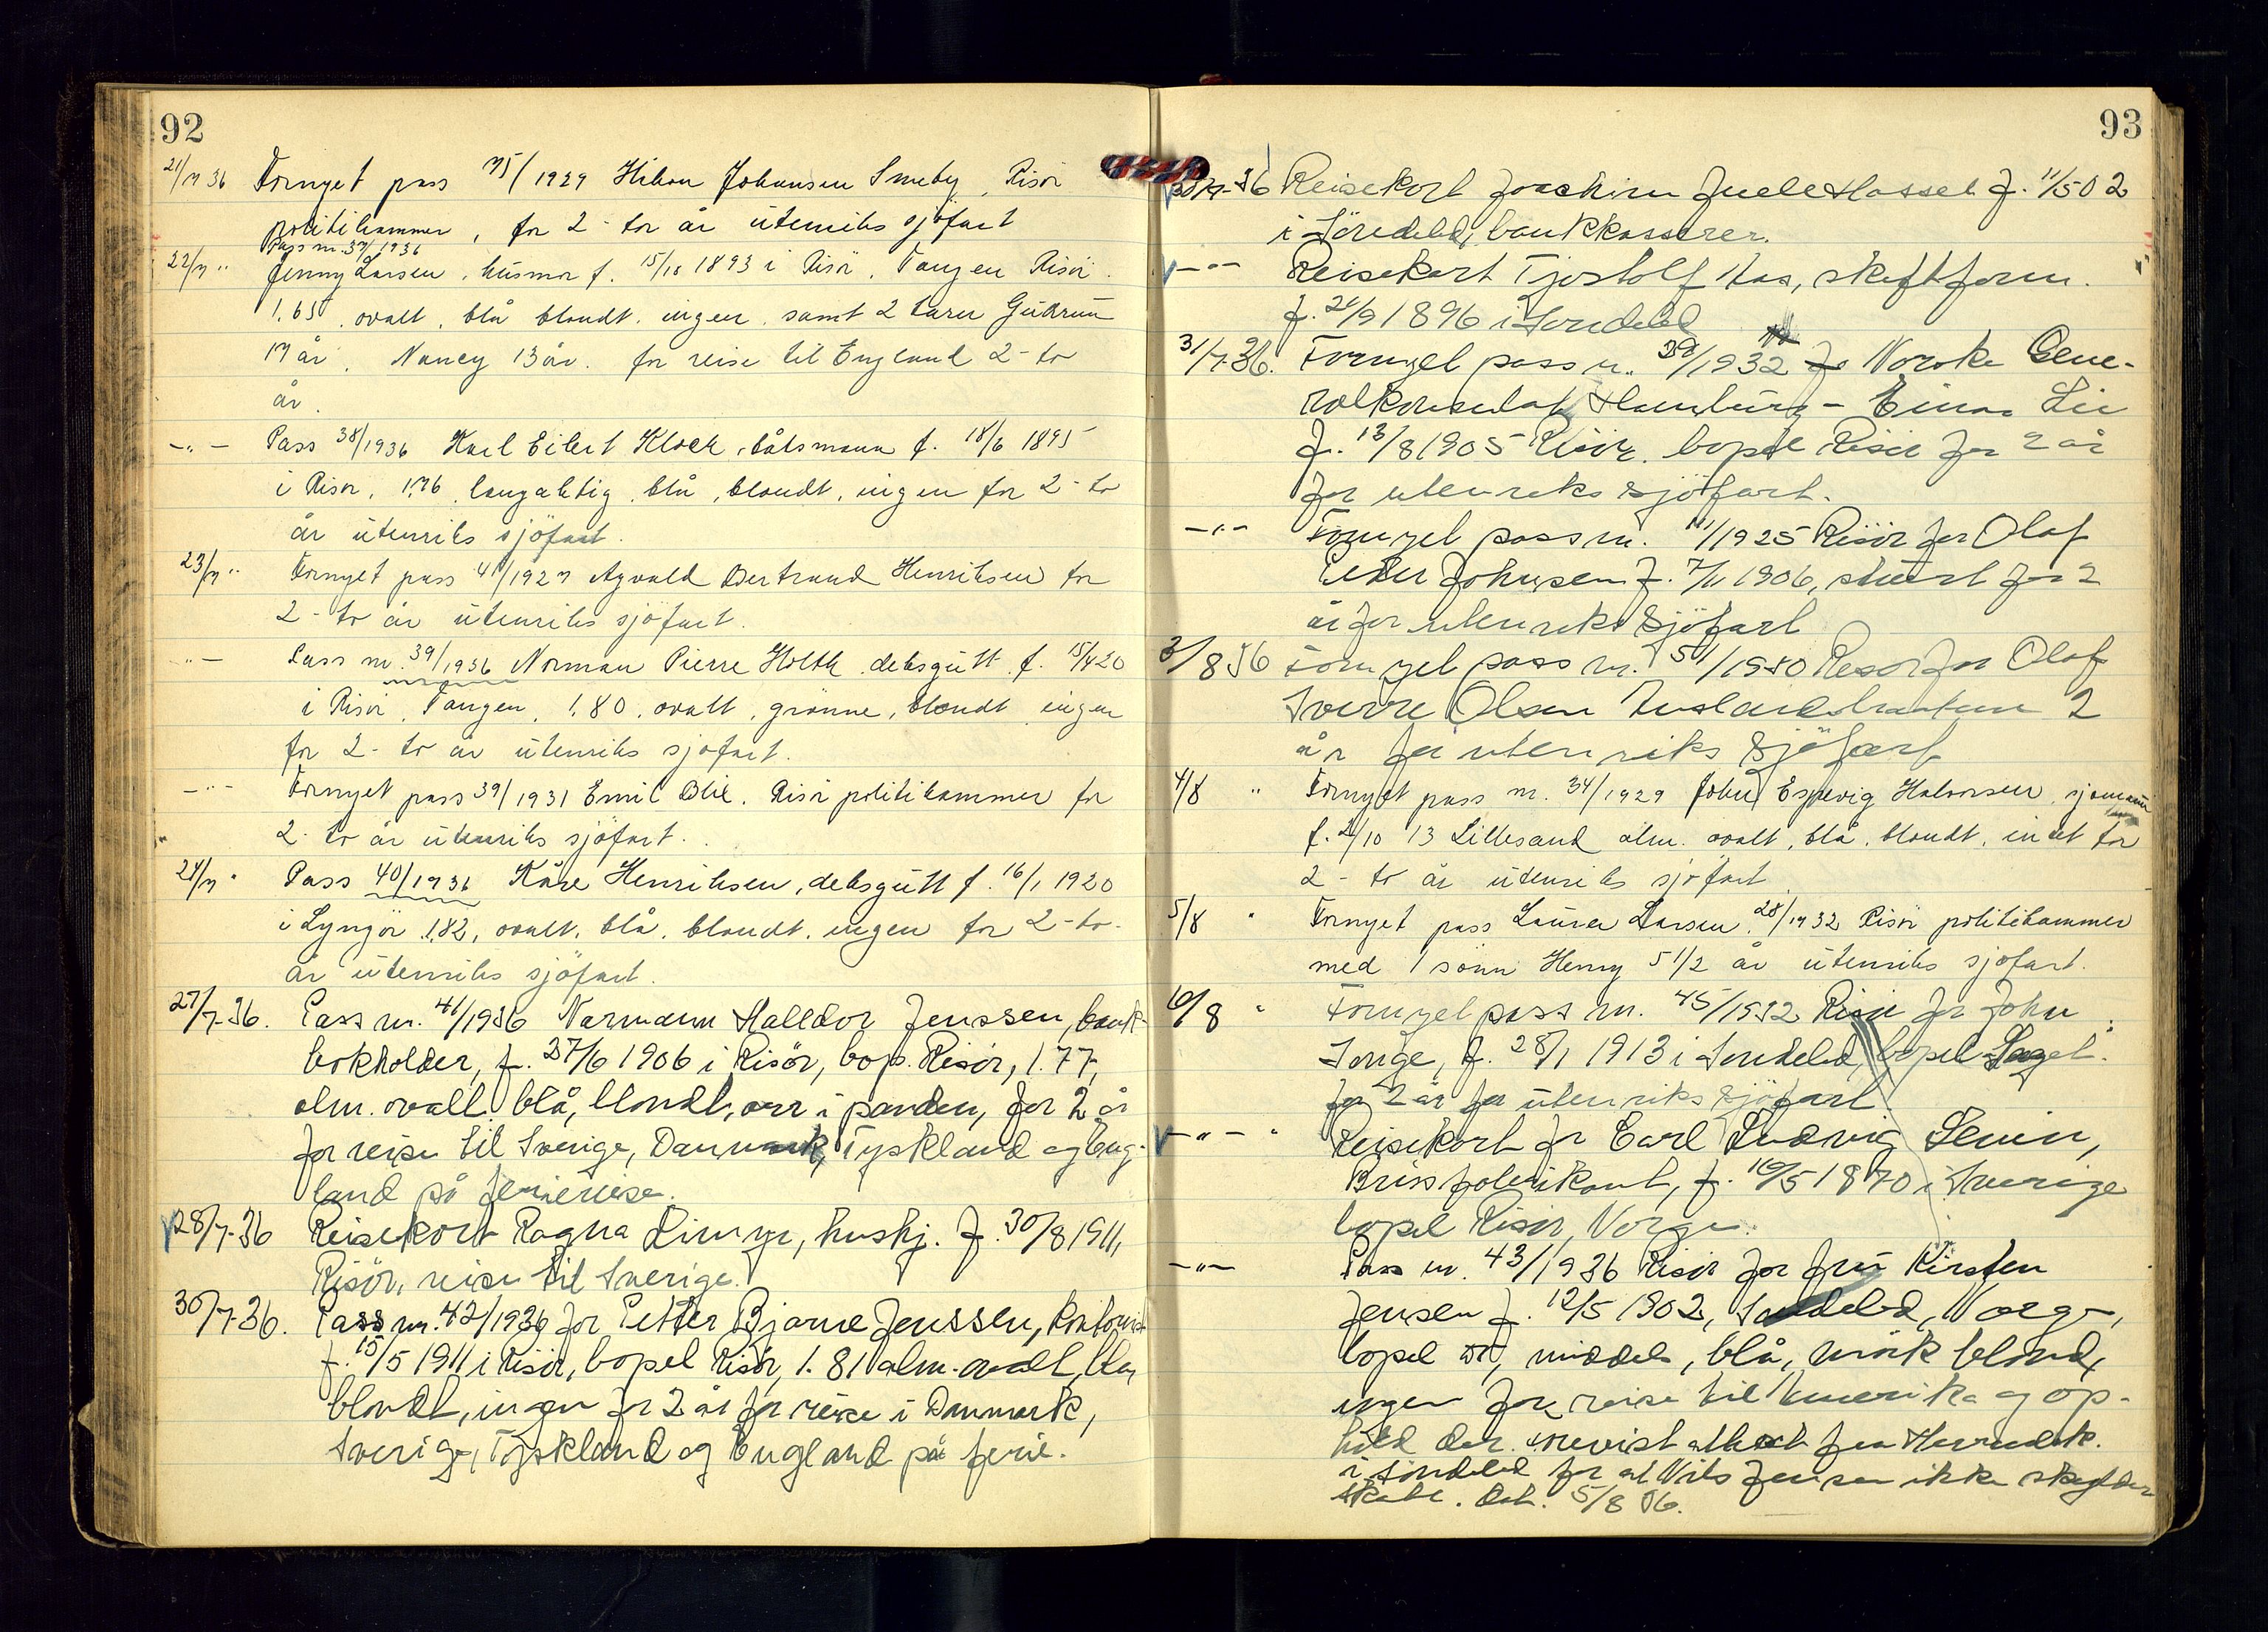 92
21/7 36 Fornyet pass 75/1929 Håkon Johansen Smeby, Risör
politikammer, for 2-to år utenriks sjöfart
Pass nr. 37/1936
22/7 " Jenny Larsen, husmor f. 15/10 1893 i Risör, Tangen Risör.
1,65, ovalt, blå blondt, ingen, samt 2 barn Gudrun
17 år, Nancy 13 år. for reise til England 2-to
år.
-"- Pass 38/1936 Karl Eilert Klock, båtsmann f. 18/6 1895
i Risör, 1,76, langaktig, blå, blondt, ingen for 2-to
år utenriks sjöfart.
23/7 " Fornyet pass 41/1927 Agvald Bertrand Henriksen for
2-to år utenriks sjöfart.
"- Pass nr. 39/1936 Norman Pierre Holth, deksgutt, f. 15/4 20
i Risör, Tangen, 1,80, ovalt, grönne, blondt, ingen
for 2-to år utenriks sjöfart.
-"- Fornyet pass 39/1931 Emil Blie. Risör politikammer for
2-to år utenriks sjöfart.
24/7 " Pass 40/1936 Kåre Henriksen, deksgutt f. 16/1 1920
i Lyngör 1,82, ovalt, blå, blondt, ingen for 2-to-
år utenriks sjöfart.
27/7-36. Pass nr. 41/1936 Narmann Halldor Jenssen, bank-
bokholder, f. 27/6 1906 i Risör, bop. Risör, 1.77,
alm. ovalt blå, blondt, arr i panden, for 2 år
for reise til Sverige, Danmark, Tyskland og Eng-
land på feriereise.
28/7-36 Reisekort Ragna Limyr, hushj. f. 30/8 1911,
Risör, reise til Sverige.
30/7-36. Pass nr. 42/1936 for Petter Bjarne Jenssen, kontorist
f. 15/5 1911 i Risör, bopel Risör, 1.81 alm. ovalt, blå,
blondt, ingen for 2 år for reise i Danmark,
Sverige, Tyskland og England på ferie.
93
36 Reisekort Joachim Juell Hassel f. 11/5 02
i Söndeled, bankkasserer.
-"- Reisekort Tjostolf Aas, skiftform.
f. 24/9 1896 i Söndeled
31/7-36. Fornyet pass nr. 39/1932 Norske Gene-
ralkonsulat Hamburg - Einar Lie
f. 13/8 1905 Risör. bopel Risör for 2 år
for utenriks sjöfart.
-"- Fornyet pass nr. 11/1925 Risör for Olaf
Peder Johnsen f. 7/11 1906, stuert for 2
år for utenriks sjöfart
3/8 36 Fornyet pass nr. 51/1930 Risör for Olaf
Sverre Olsen 2
år for utenriks sjöfart
4/8 " Fornyet pass nr. 34/1929 John Espevig Halvorsen, sjömann
f. 2/10 13 Lillesand alm. ovalt, blå, blondt, intet for
2-to år utenriks sjöfart.
5/8 " Fornyet pass Laura Larsen, 28/1932 Risör politikammer
med 1 sönn Henry 5 1/2 år utenriks sjöfart.
10/8 " Fornyet pass nr. 45/1932 Risör for John
Songe, f. 28/1 1913 i Söndeled, bopel
for 2 år for utenriks sjöfart.
-"- " Reisekort for Carl Ludvig
Brusfabrikant, f. 16/5 1870 i Sverige
bopel Risör, Norge.
-"- Pass nr. 43/1936 Risör for fru Kirsten
Jensen f. 12/5 1902, Söndeled, Norge,
bopel do, middels, blå, mörk blond,
ingen for reise til Amerika og op-
hold der. Forevist attest fra Herredsk.
i Söndeled for at Nils Jensen ikke skylder
skatt. dat. 5/8 36.